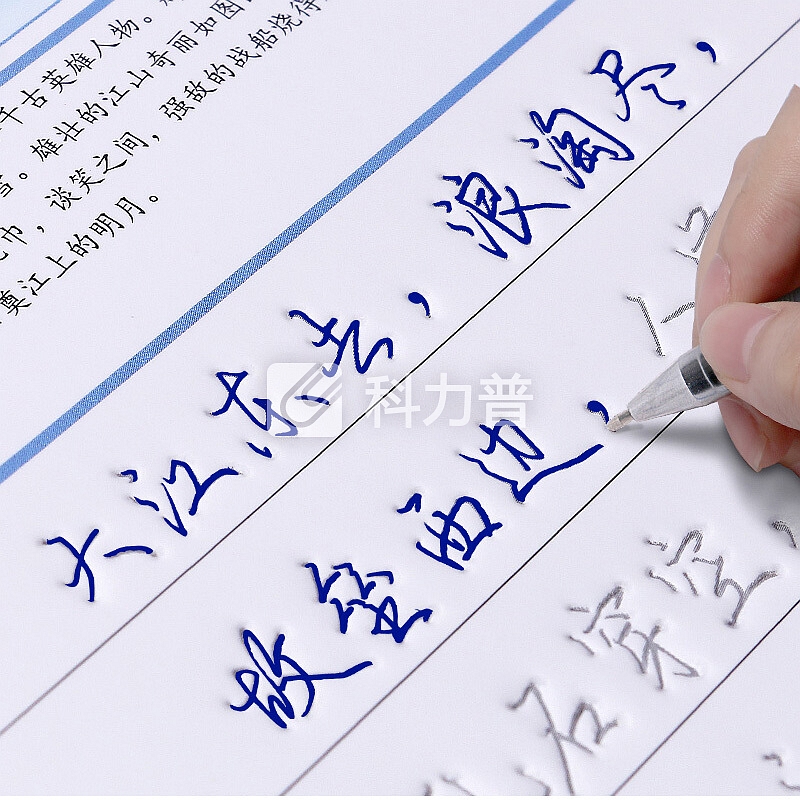 千古英雄人物。
雪。雄壮的江山奇丽如图
巾，谈笑之间，强敌的战船烧得
奠江上的明月。
大江东去，浪淘尽，
故垒西边，人
石穿空，
科力普